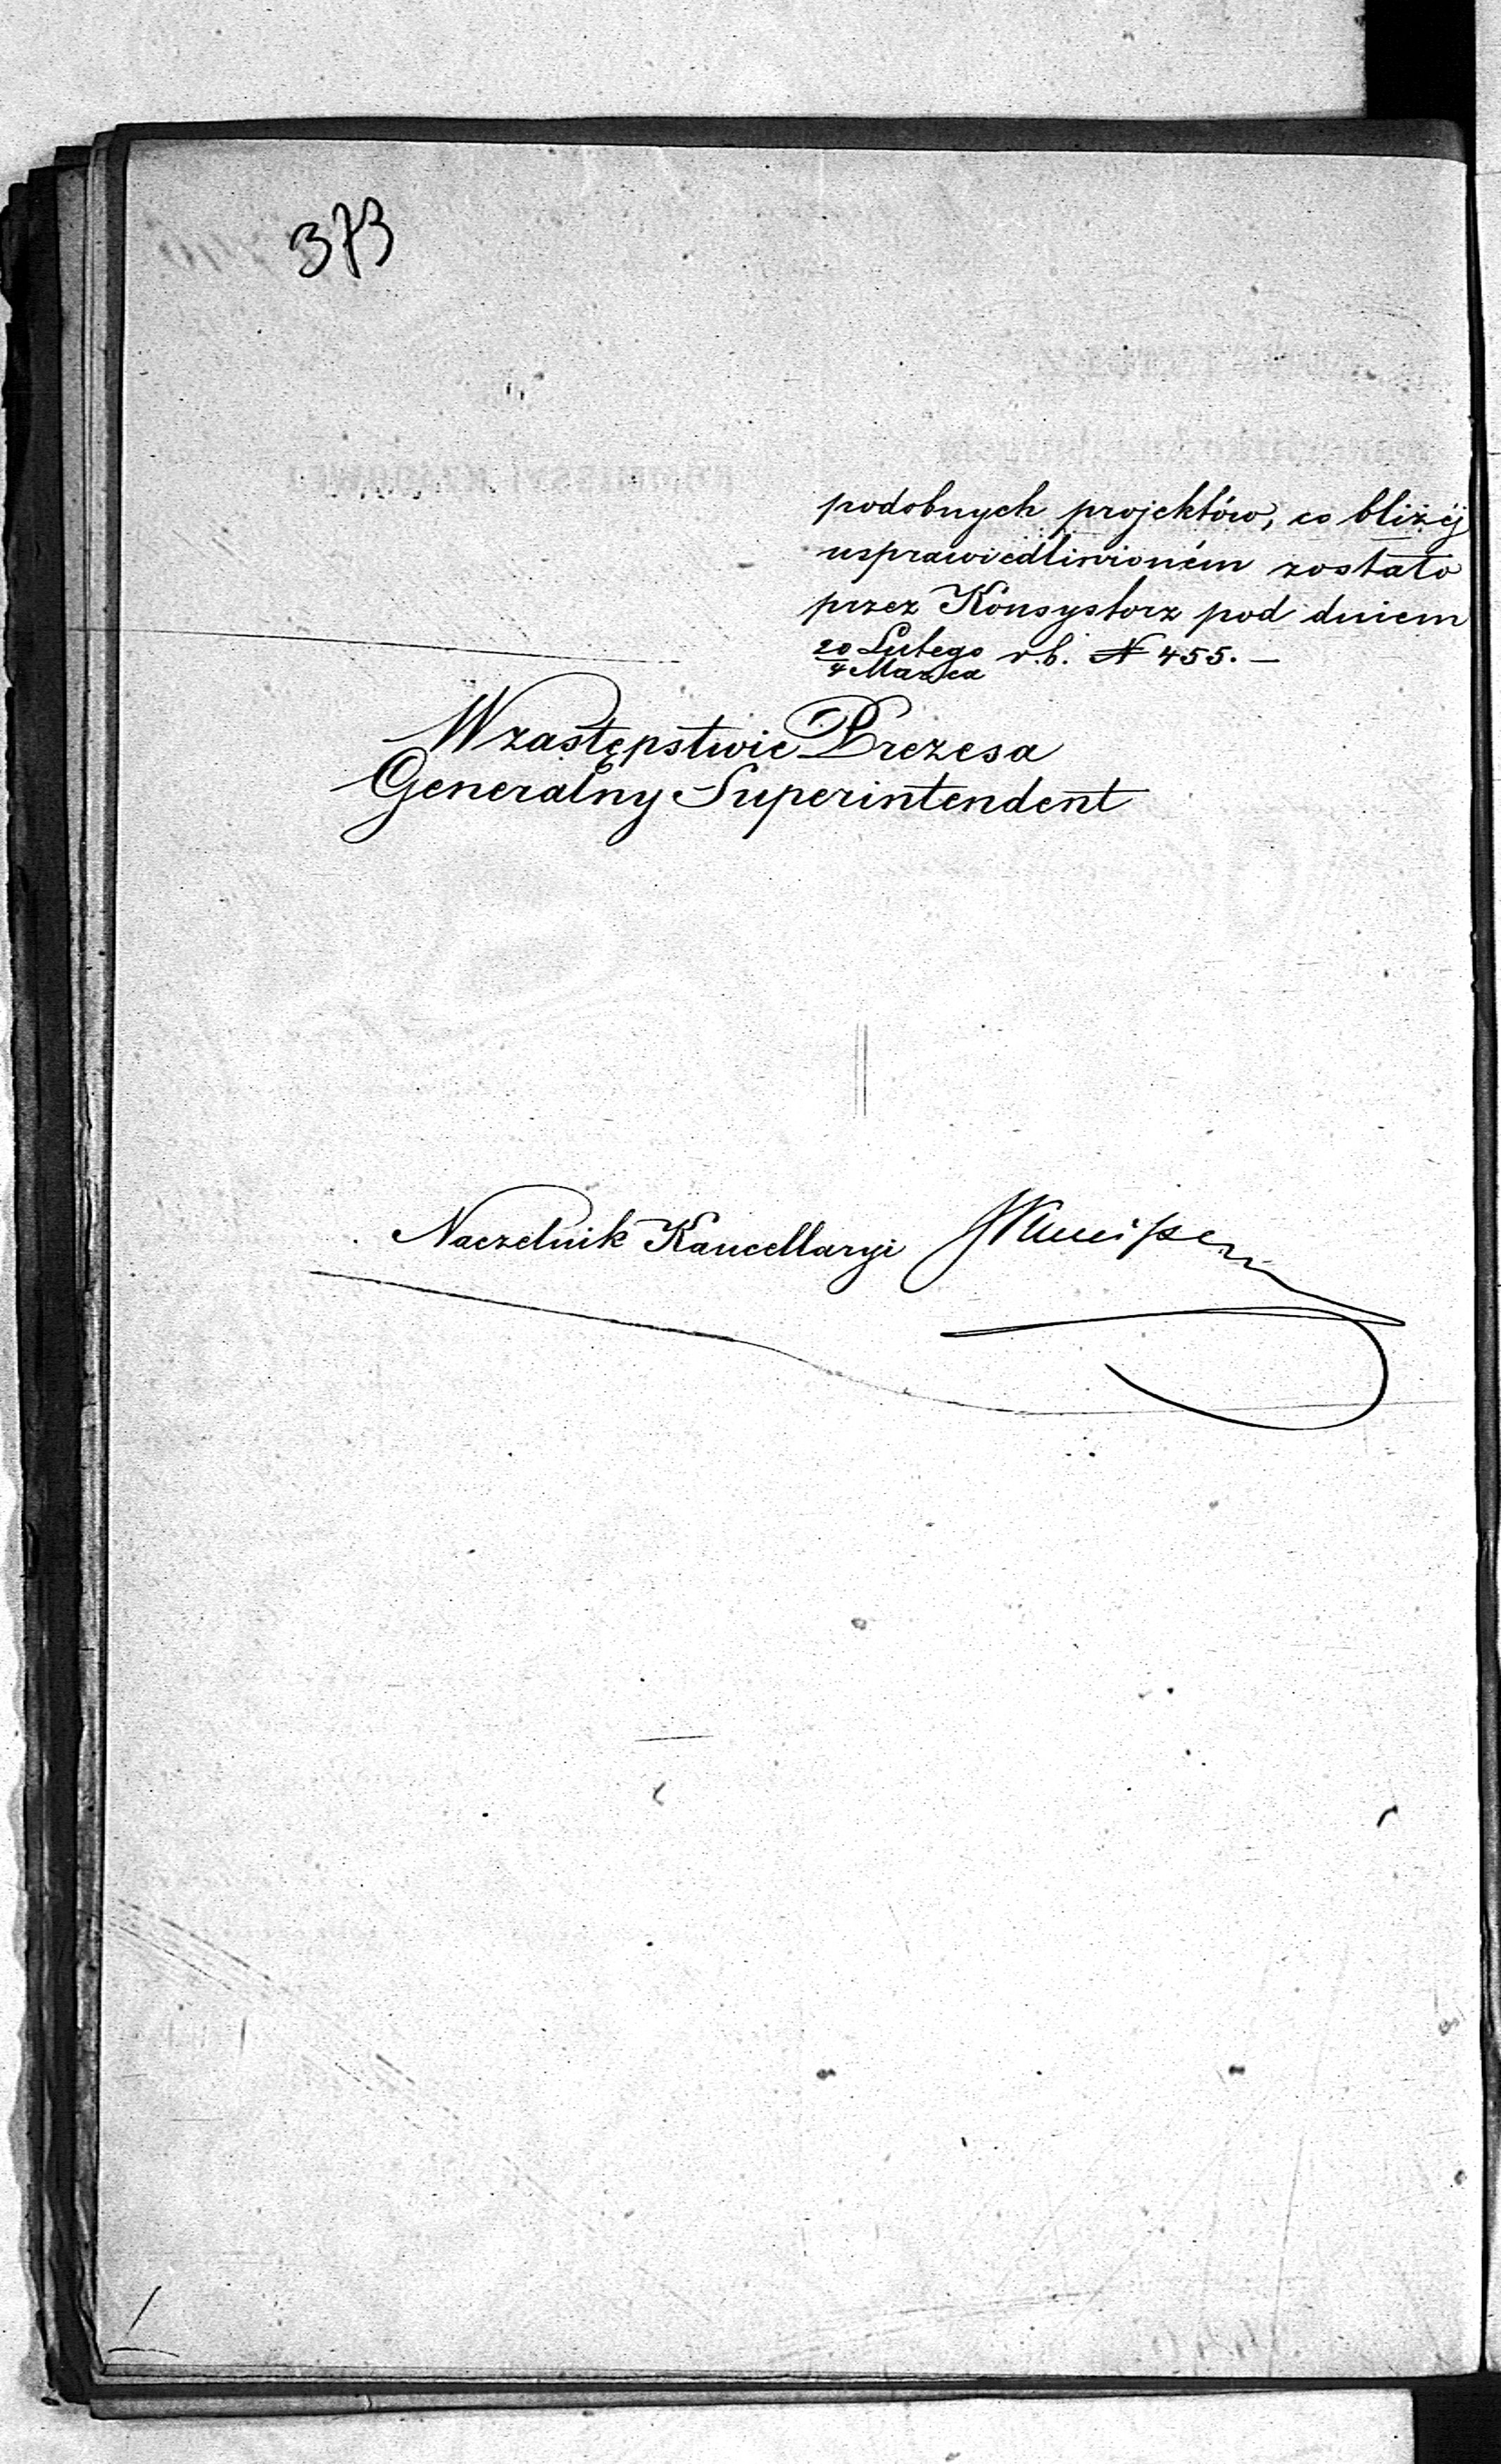 373
podobnych projektów, co bliżéj
usprawiedliwioném zostało
przez Konsystorz pod dniem
20 Lutego / 4 Marca r. b. N 455. —
W zastępstwie Prezesa
Generalny Superintendent
Naczelnik Kancellaryi